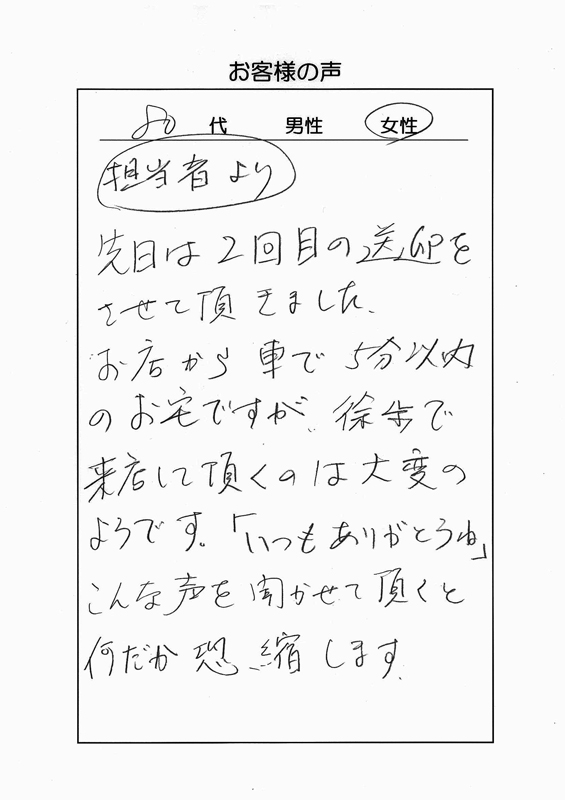 お客様の声
80 代 男性 女性
担当者より
先日は2回目の送迎を
させて頂きました.
お店から車で5分以内
のお宅ですが、徐歩で
来店して頂くのは大変の
ようです。「いつもありがとうね」
こんな声を聞かせて頂くと
何だか恐縮します.